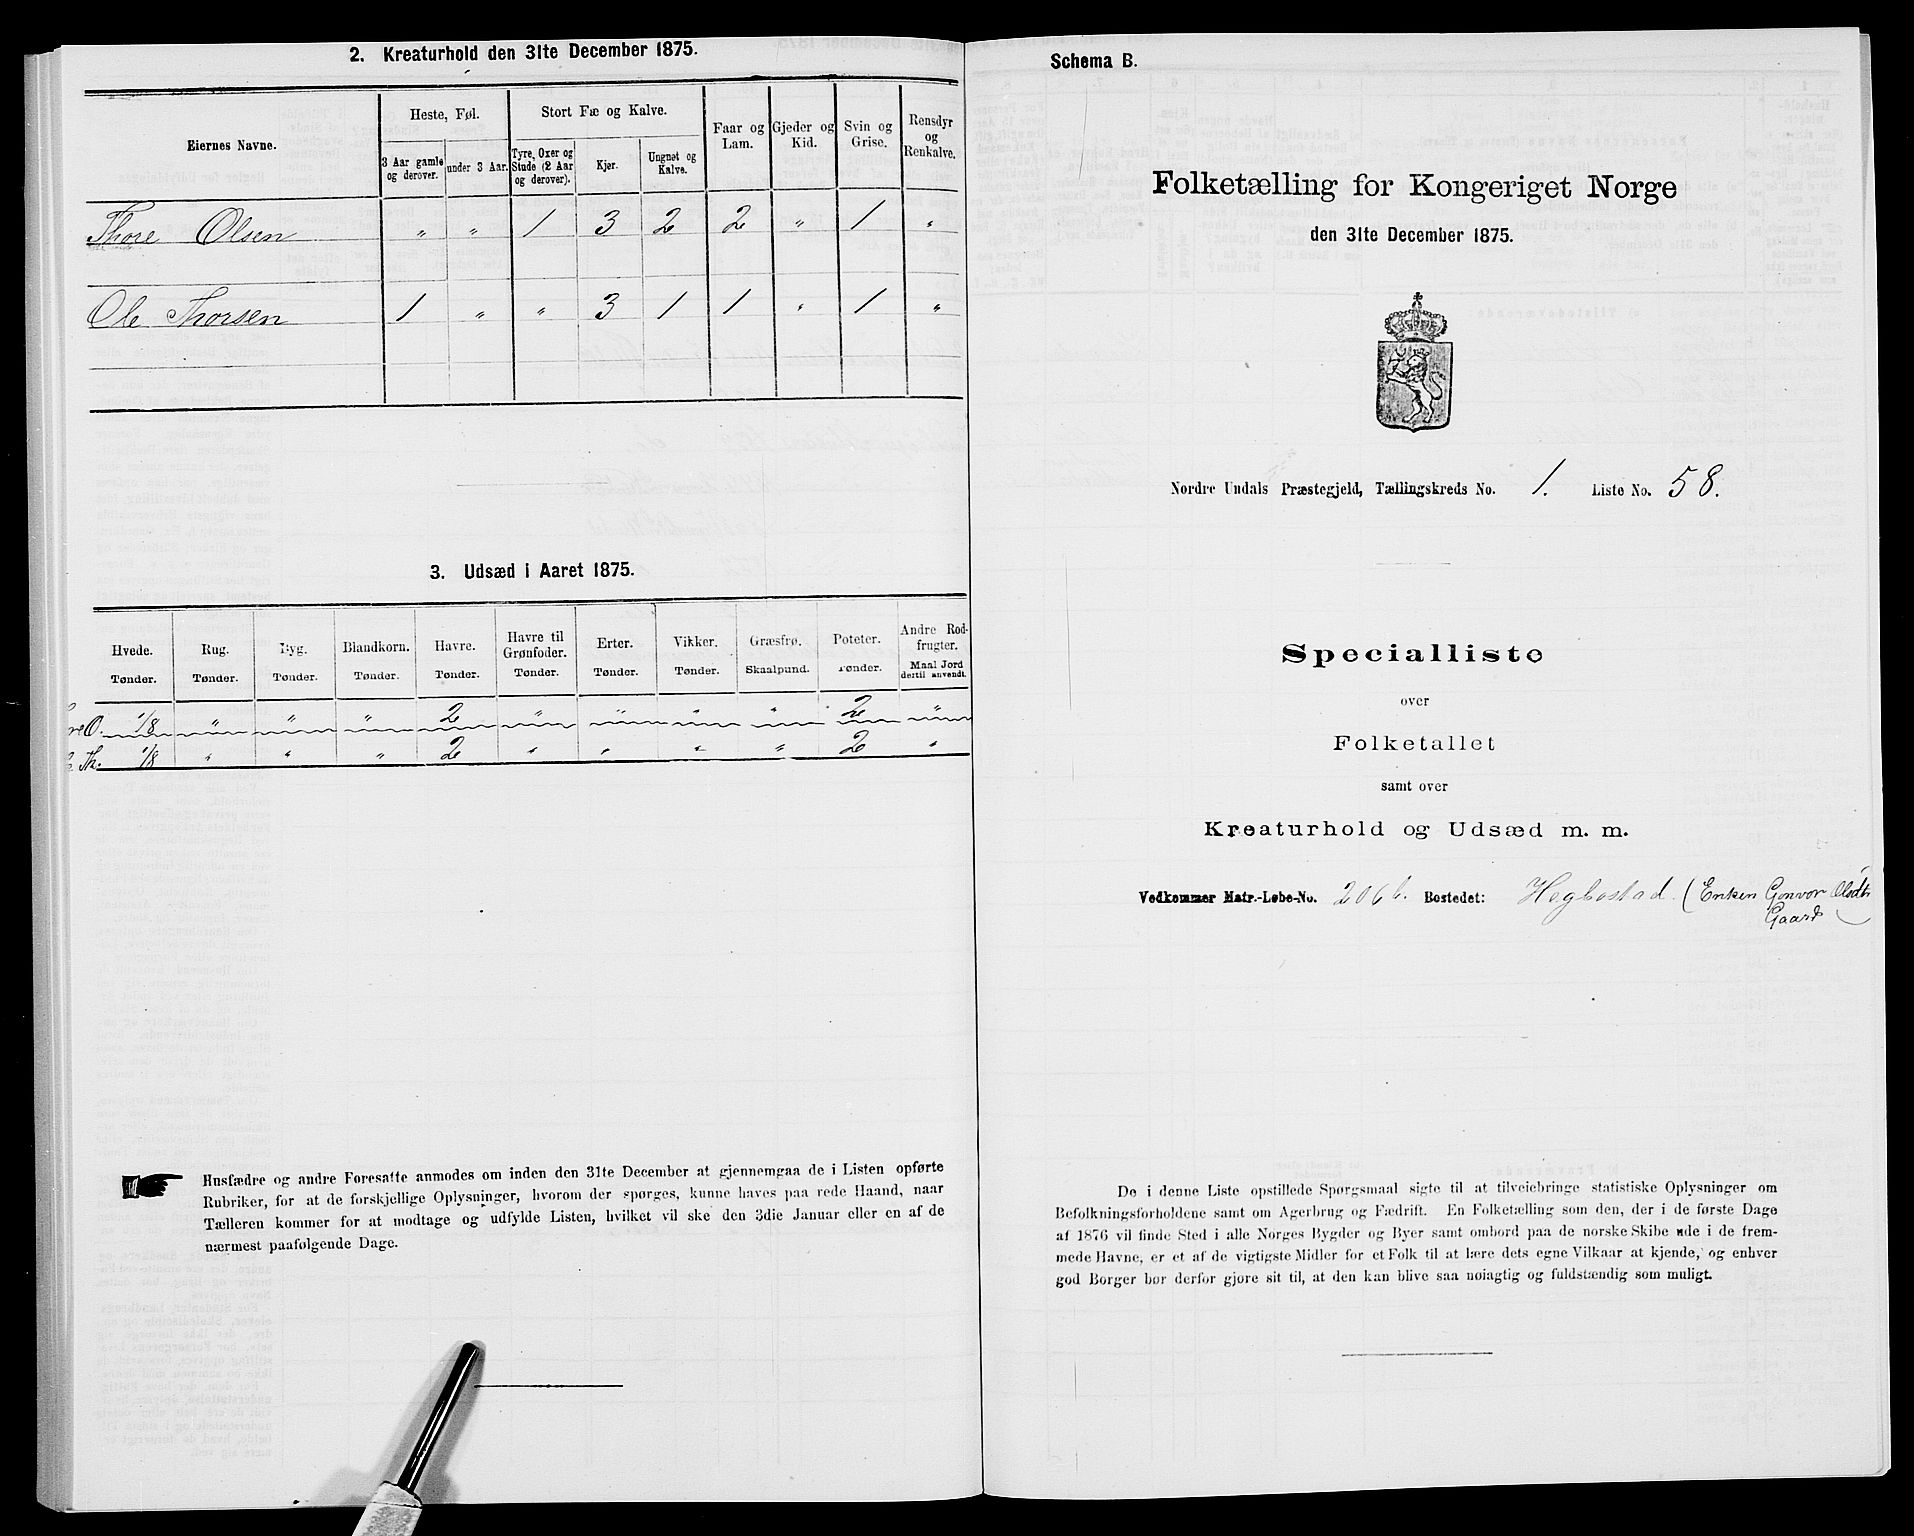 2. Kreaturhold den 31te December 1875.
Eiernes Navne.
Heste, Føl.
Stort Fæ og Kalve.
Faar og Lam.
Gjeder og Kid.
Svin og Grise.
Rensdyr og Renkalve.
3 Aar gamle og derover.
under 3 Aar.
Tyre, Oxer og Stude (2 Aar og derover).
Kjør.
Ungnøt og Kalve.
Thore Olsen " " 1 3 2 2 " 1 "
Ole Thorsen 1 " " 3 1 1 " 1 "
3. Udsæd i Aaret 1875.
Hvede. Rug. Byg. Blandkorn. Havre. Havre til Grønfoder. Erter. Vikker. Græsfrø. Poteter. Andre Rodfrugter.
Tønder. Tønder. Tønder. Tønder. Tønder. Tønder. Tønder. Tønder. Skaalpund. Tønder. Maal Jord dertil anvendt.
re O. 1/8 " " " 2 " " " " 2 "
Th. 1/8 " " " 2 " " " " 2 "
Husfædre og andre Foresatte anmodes om inden den 31te December at gjennemgaa de i Listen opførte
Rubriker, for at de forskjellige Oplysninger, hvorom der spørges, kunne haves paa rede Haand, naar
Tælleren kommer for at modtage og udfylde Listen, hvilket vil ske den 3die Januar eller en af de
nærmest paafølgende Dage.
Schema B.
Folketælling for Kongeriget Norge
den 31te December 1875.
Nordre Undals Præstegjeld, Tællingskreds No. 1. Liste No. 58.
Specialliste
over
Folketallet
samt over
Kreaturhold og Udsæd m. m.
Vedkommer Matr.-Løbe-No. 206b. Bostedet: Hegbostad. (Enken Gonvor Olsdtr
Gaard)
De i denne Liste opstillede Spørgsmaal sigte til at tilveiebringe statistiske Oplysninger om
Befolkningsforholdene samt om Agerbrug og Fædrift. En Folketælling som den, der i de første Dage
af 1876 vil finde Sted i alle Norges Bygder og Byer samt ombord paa de norske Skibe ude i de frem-
mede Havne, er et af de vigtigste Midler for et Folk til at lære dets egne Vilkaar at kjende, og enhver
god Borger bør derfor gjøre sit til, at den kan blive saa nøiagtig og fuldstændig som muligt.